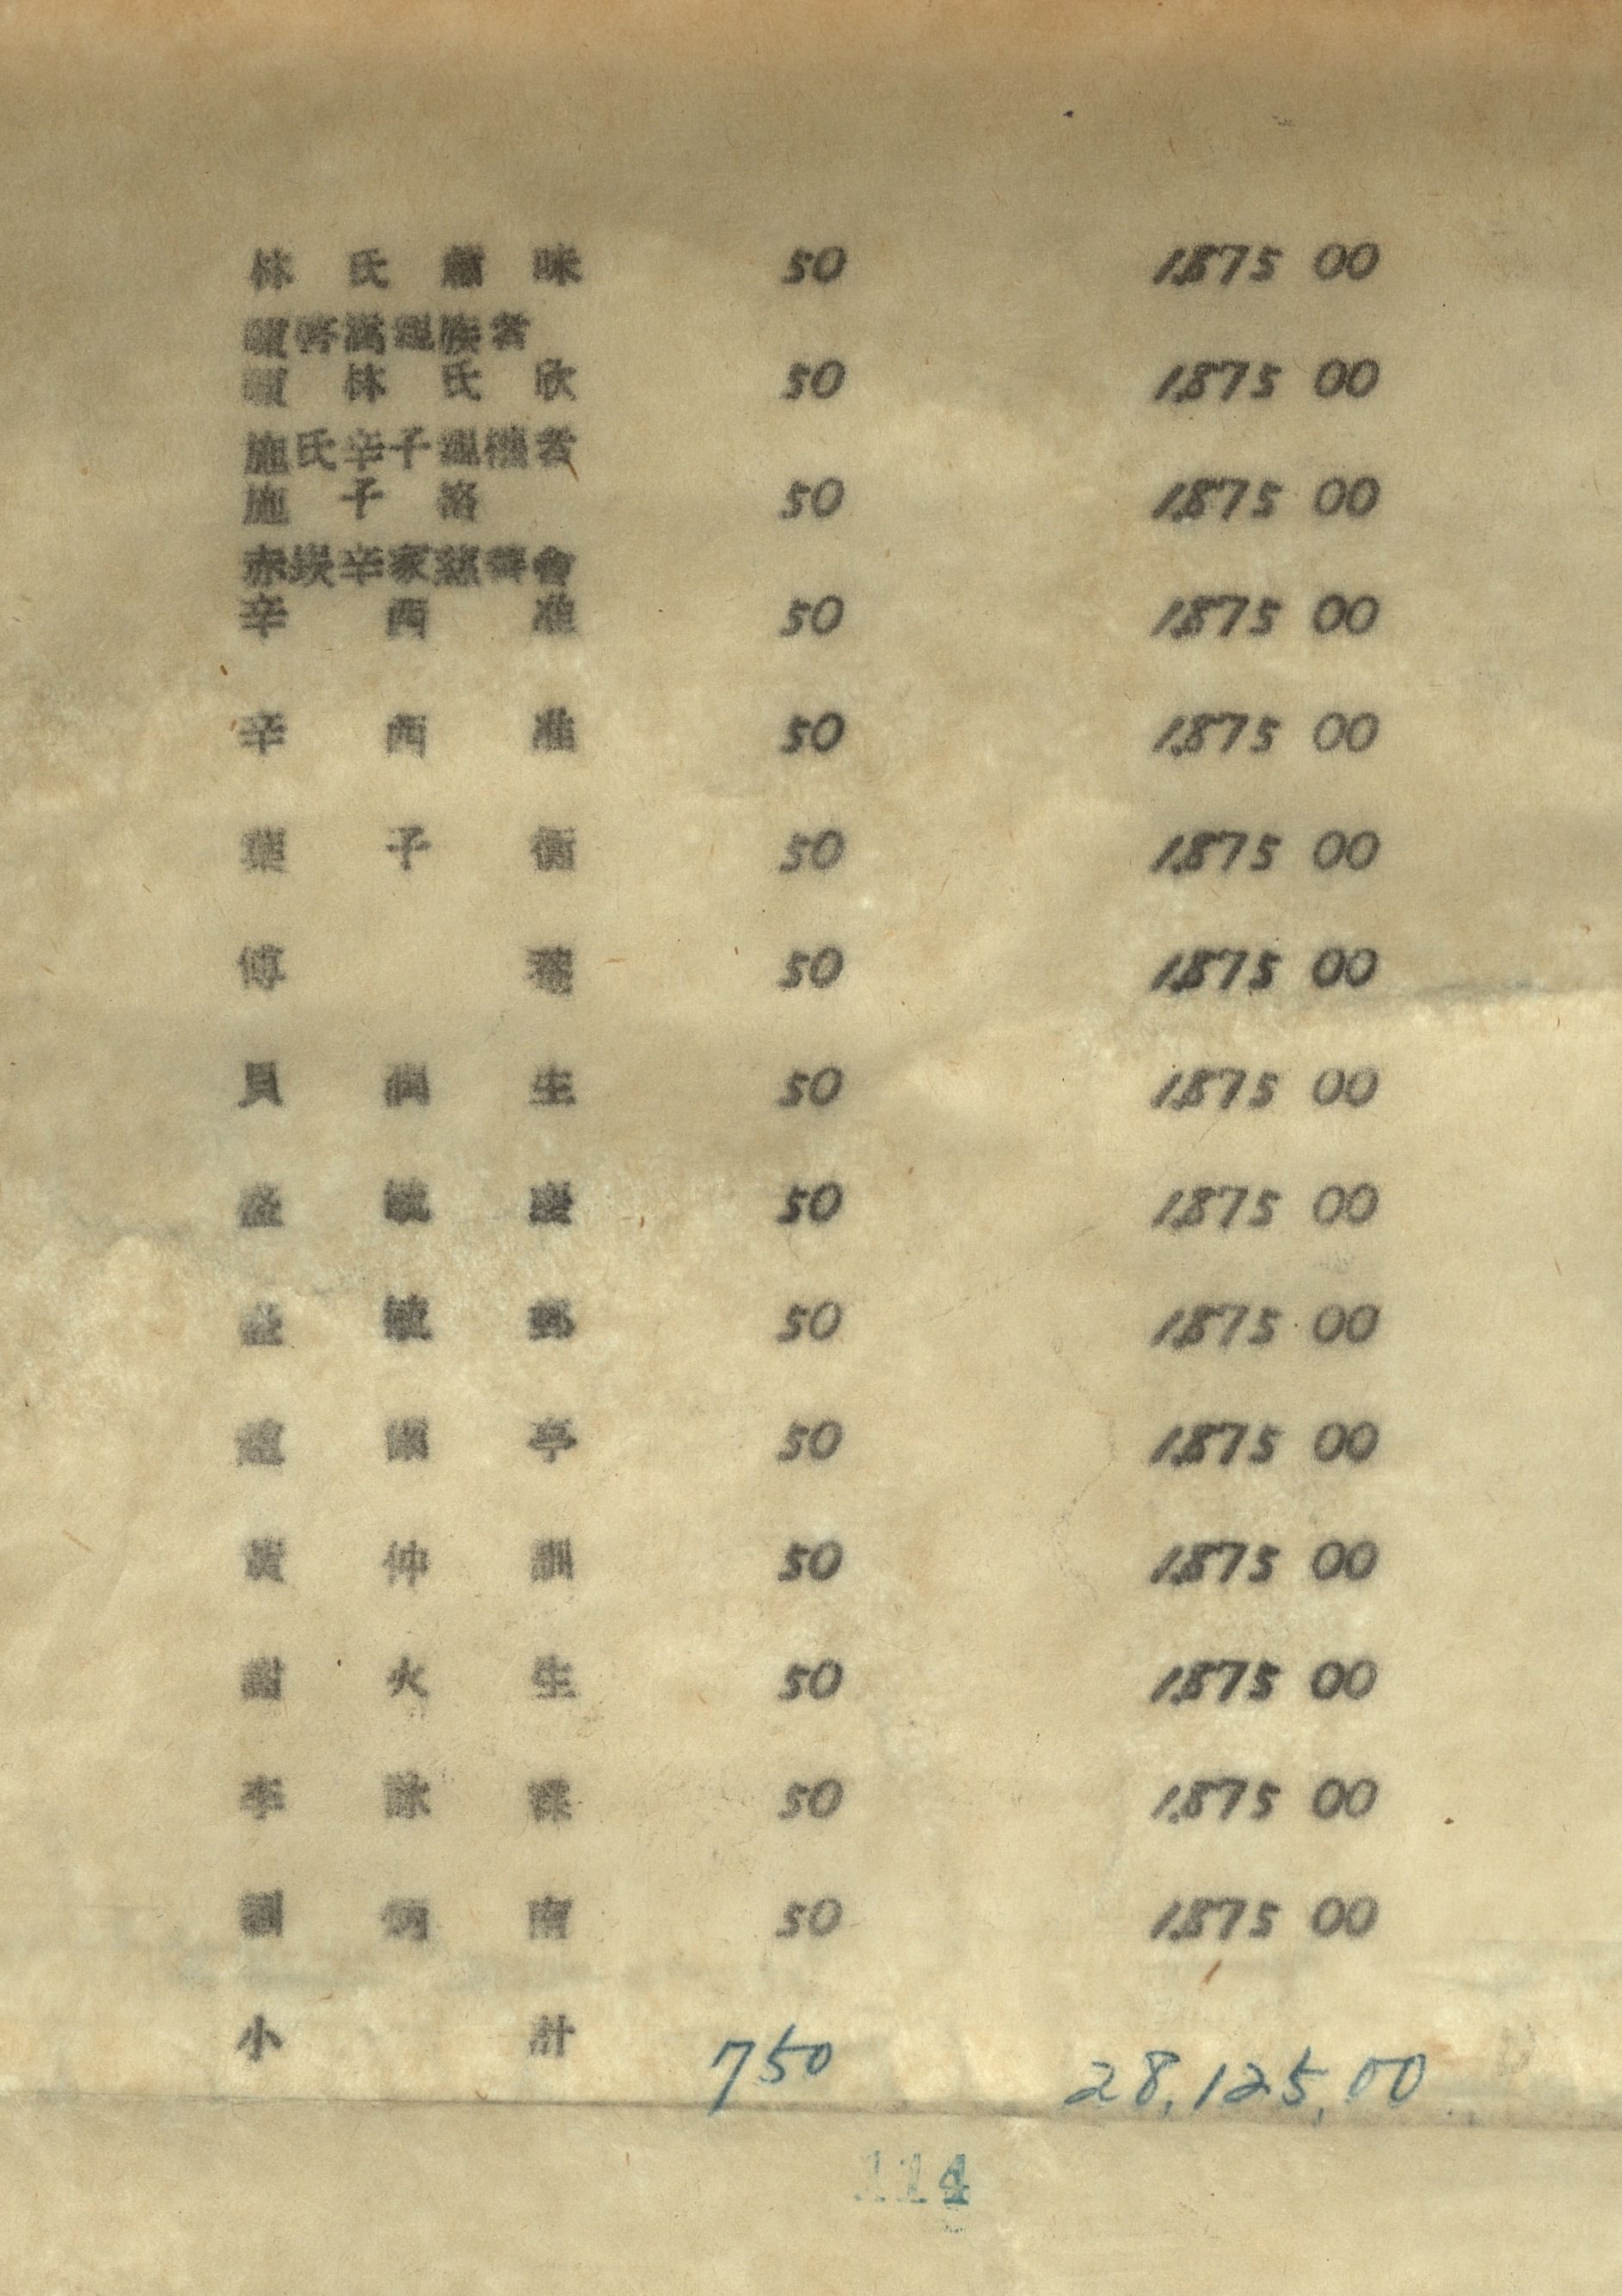 林氏 咪 50 1,875 00
者
林氏欣 50 1,875 00
施氏辛子親權者
施子 50 1,875 00
赤崁辛家慈善會
辛西淮 50 1,875 00
辛西淮 50 1,875 00
葉子衡 50 1,875 00
傅 50 1,875 00
貝潤生 50 1,875 00
盛毓 50 1,875 00
盛毓郵 50 1,875 00
盧澗亭 50 1,875 00
黃仲訓 50 1,875 00
謝火生 50 1,875 00
李詠 50 1,875 00
劉炳南 50 1,875 00
小計 750 28,125.00
114